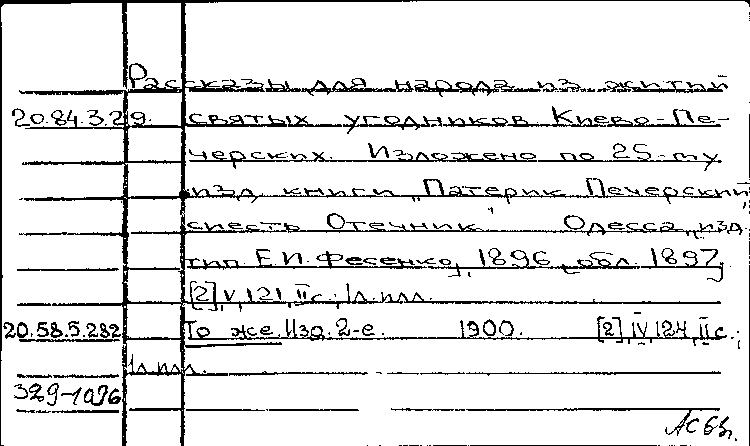 Рассказы для народа из житий
20.84.3.29. святых угодников Киево-Пе-
черских. Изложено по 25-му
изд. книги "Патерик Печерский,
сиесть Отечник" Одесса, изд.
тип. Е.И. Фесенко, 1896, обл. 1897,
[2], V, 121, II с.; 1 л. илл.
20.58.5.282 То же. Изд. 2-е. 1900. [2], IV, 124, II с.;
1 л. илл.
329-1096